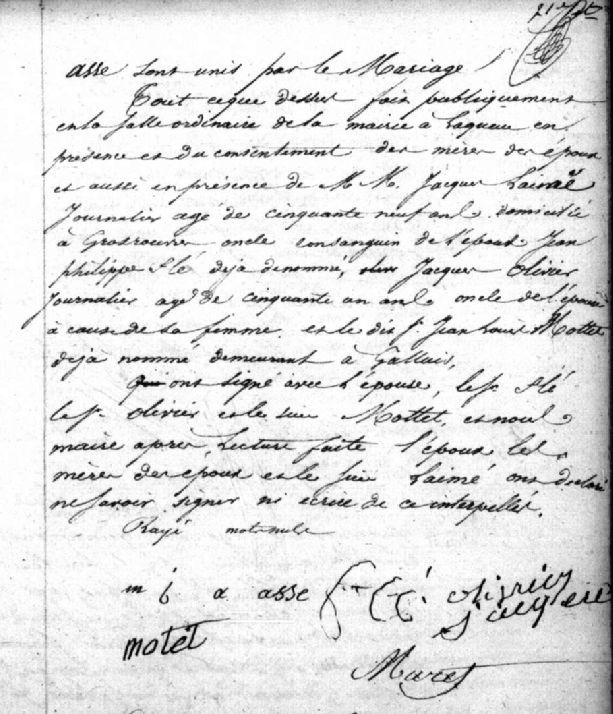 asse sont unis par le Mariage
Tout ceque dessus fait publiquement
en la Salle ordinaire de la mairie à en
présence et du consentement des mères des epoux
et aussi en présence de M M. Jacques Lainé
Journalier agé de cinquante neuf ans domicilié
à Grosrouvre oncle consanguin de l'époux Jean
philippe flé deja denommé, Jacques olivier
Journalier agé de cinquante un ans oncle de l'épouse
à cause de sa femme et le dit Sr. Jean Louis Mottet
deja nommé demeurant à Galluis,
Qui ont signé avec l'épouse, le Sr. flé
le Sr. olivier et le sieur Mottet, et nous
maire après Lecture faite l'époux les
mères des epoux et le sieur Lainé ont declaré
ne savoir signer ni ecrire de ce interpellés.
Rayé mot nuls
m asse olivier
motet
Maret